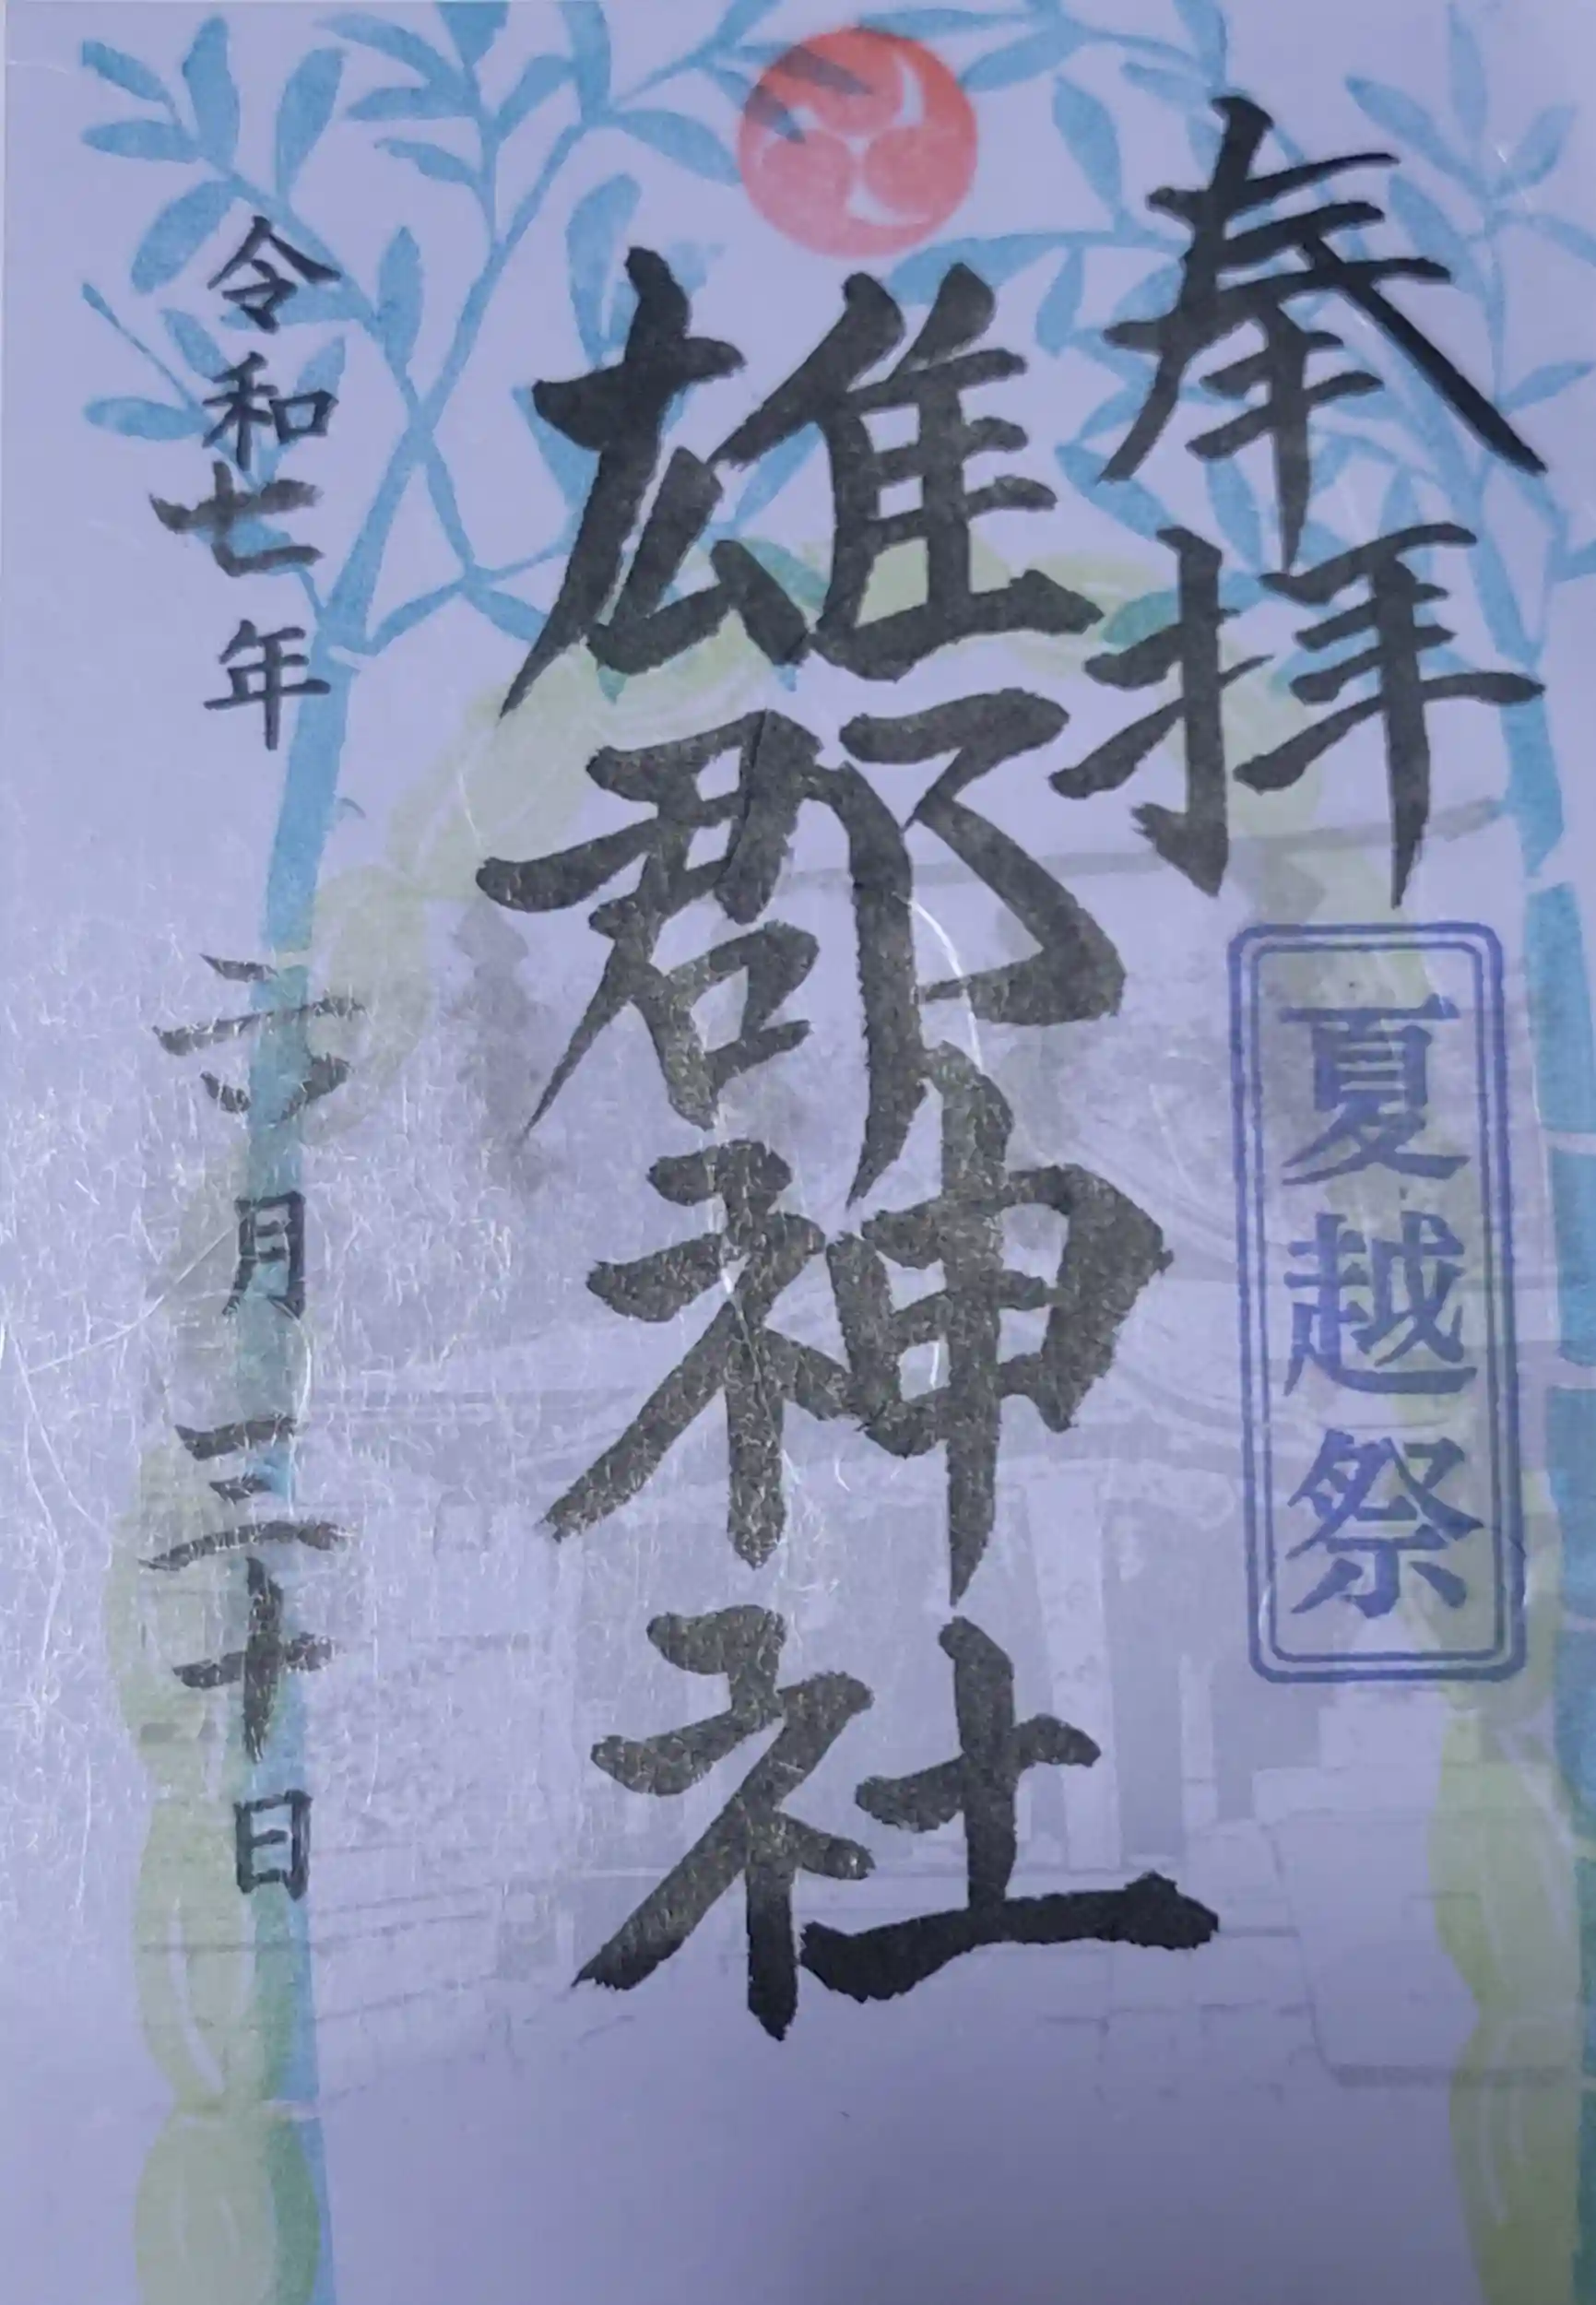 奉拝
夏越祭
雄郡神社
令和七年 六月三十日